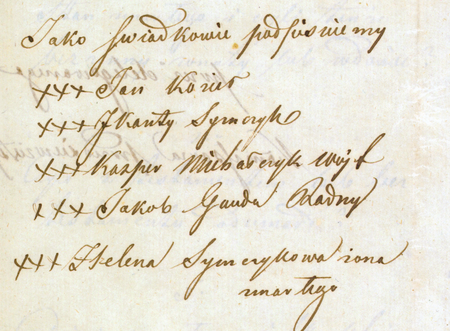 Jako świadkowie podpisujemy
+++ Jan Kozieł
+++ J Kanty Symczyk
+++ Kasper Michalczyk Wójt
+++ Jakob Gauda Radny
+++ Helena Symczykowa żona
zmarłego